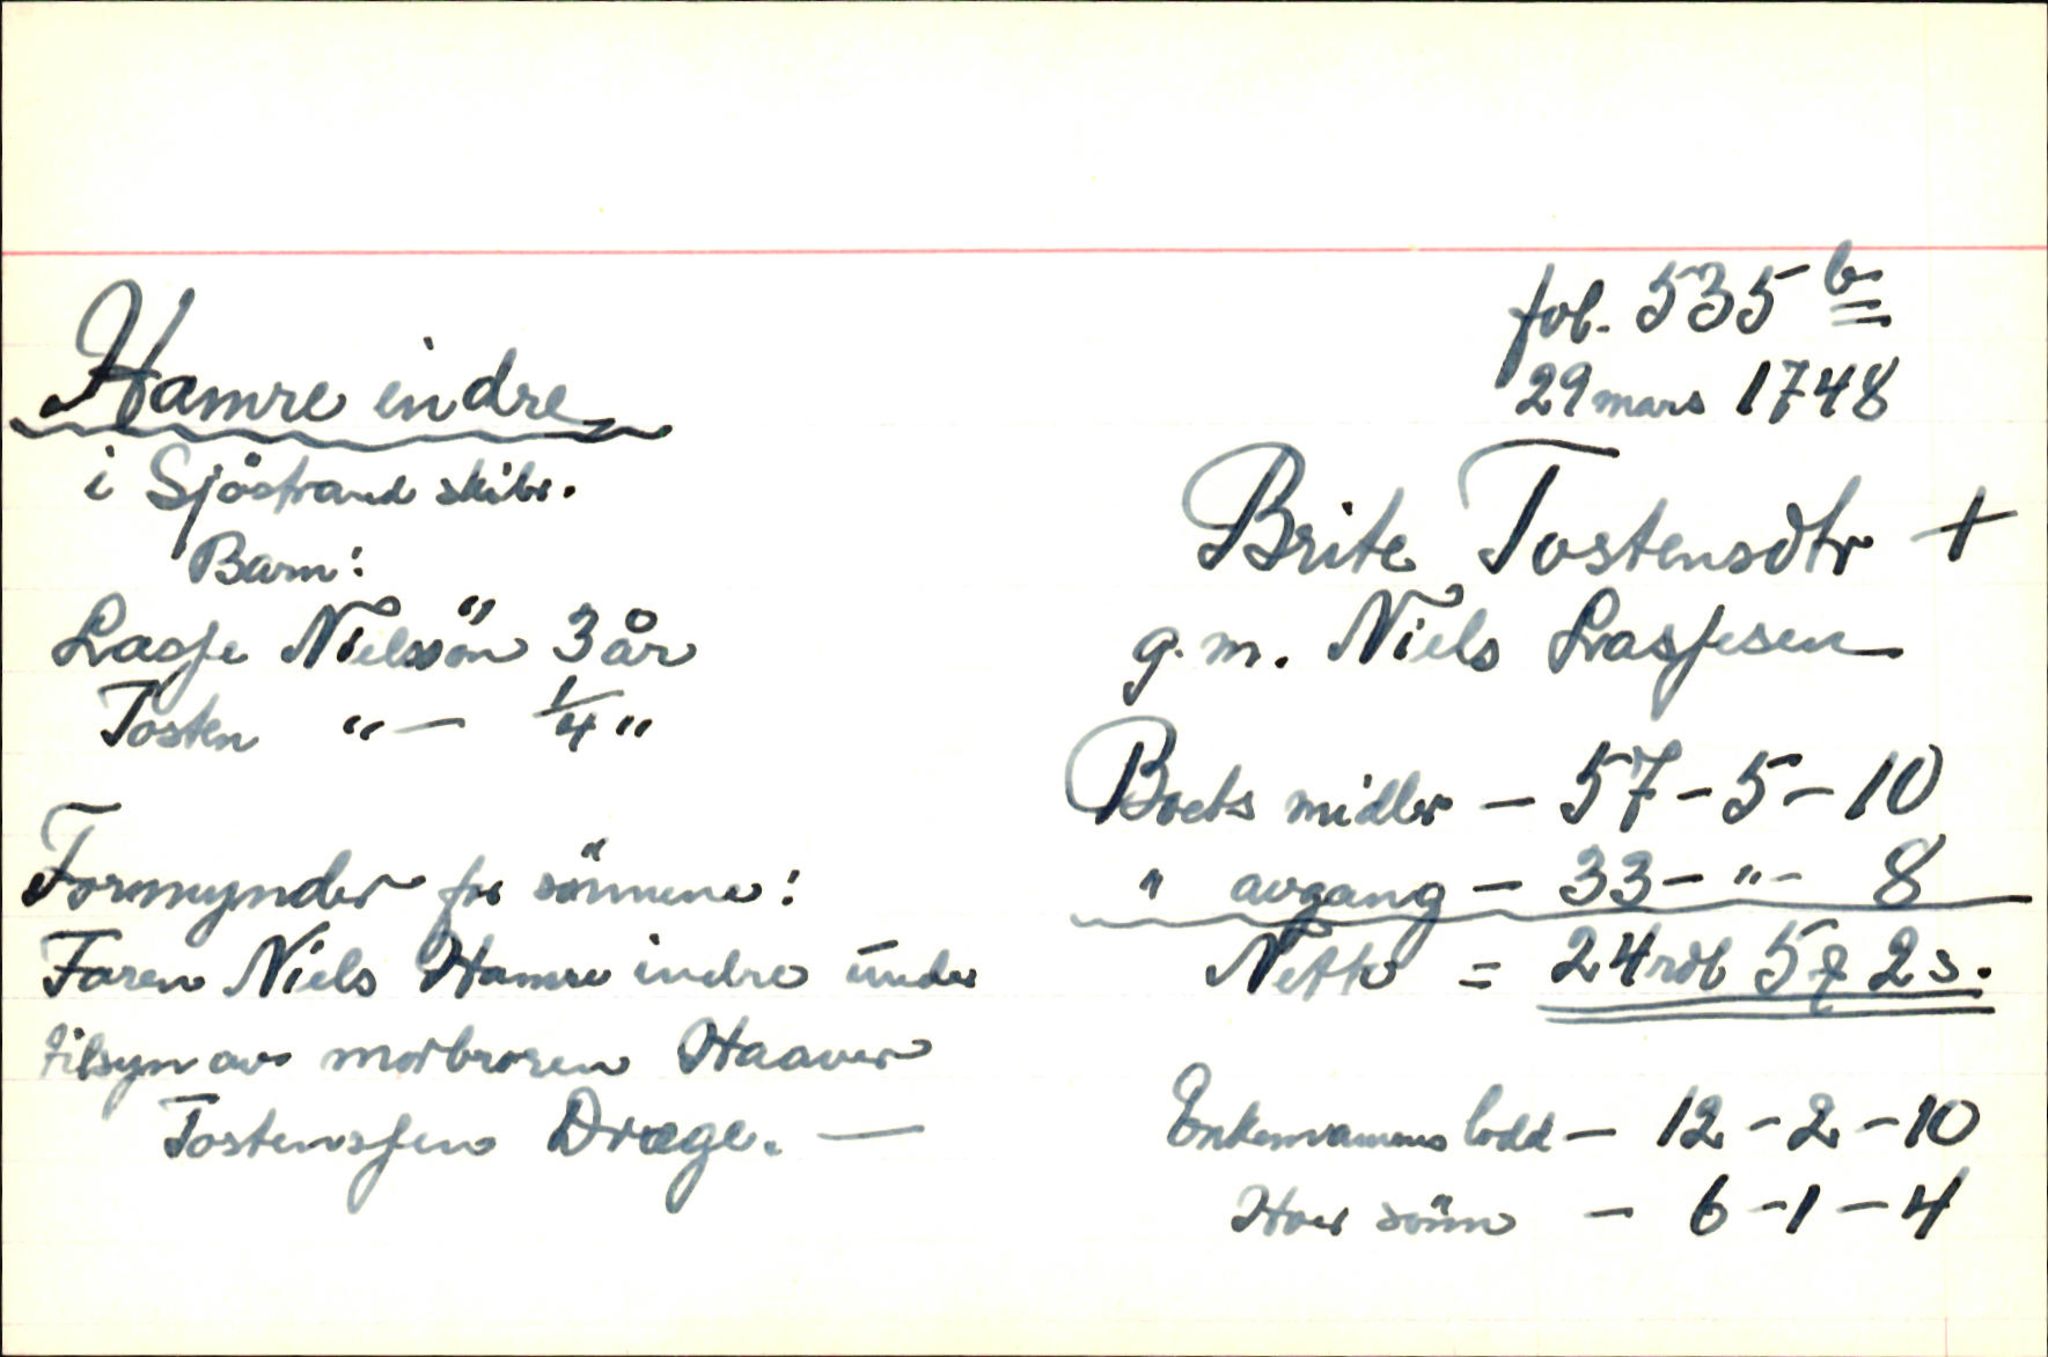 Hamre indre
i Sjöstrand skibr.
Barn:
Lasse Nielssön 3 år
Tosten "— 1/4 "
Formynder for sönnene:
Faren Niels Hamre indre under
tilsyn av morbroren Haaver
Tostenssen Drage. —
fol. 535 b
29 mars 1748
Brite Tostensdtr +
g. m. Niels Lassesen
Boets midler — 57 - 5 - 10
" avgang — 33 - " - 8
Netto = 24 rdl 5 ℳ 2 s.
Enkemannens lodd — 12 - 2 - 10
Hver sönn — 6 - 1 - 4